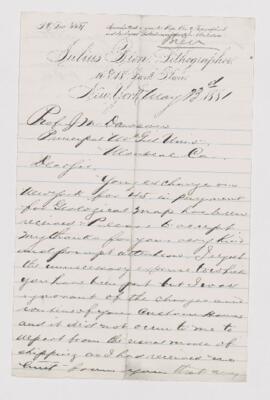 Julius Bien, Lithographer
16 & 18 Park Place
New York, May 23d 1881
Prof. J. W. Dawson
Principal McGill Univ.
Montreal Ca.
Dear Sir:
Your exchange on
New York for 45 in payment
for Geological maps has been
received. Please to accept
my thanks for your very kind
and prompt attention. I regret
the unnecessary expense to which
you have been put but I was
ignorant of the charges and
routine of your Custom House
and it did not occur to me to
depart from the usual mode of
shipping and had received no
upon that way